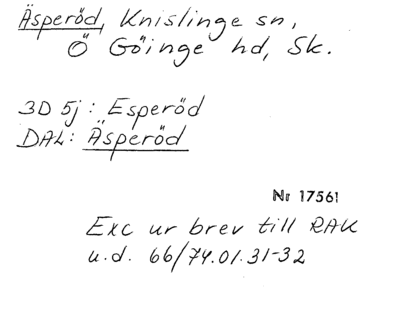 Äsperöd, Knislinge sn,
Ö Göinge hd, Sk.
3D 5j: Esperöd
DAL: Äsperöd
Nr 17561
Exc ur brev till RAK
u.d. 66/74.01.31-32